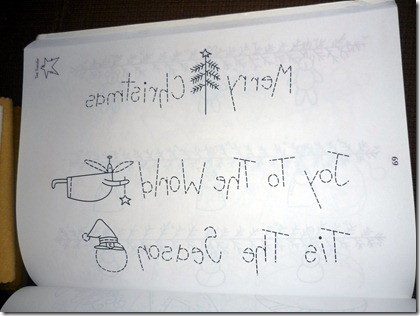 Merry Christmas
Joy To The World
'Tis The Season
69